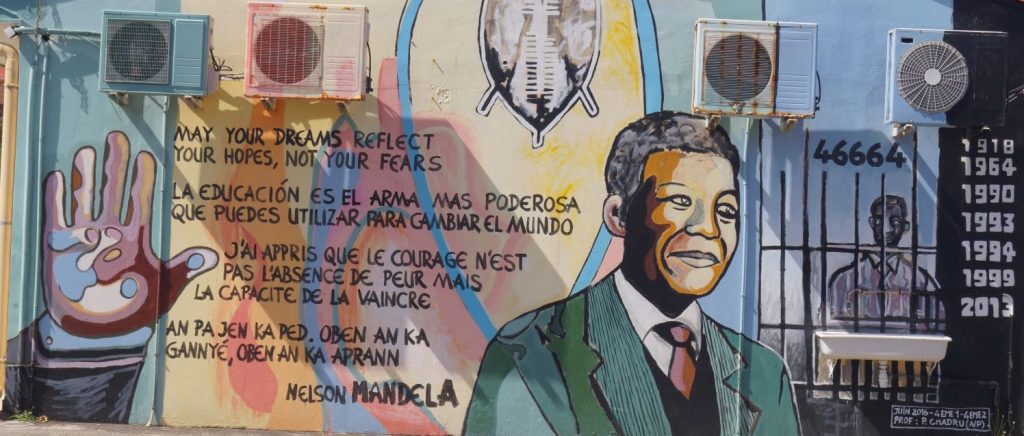 MAY YOUR DREAMS REFLECT
YOUR HOPES, NOT YOUR FEARS
LA EDUCACIÓN ES EL ARMA MAS PODEROSA
QUE PUEDES UTILIZAR PARA CAMBIAR EL MUNDO
J'AI APPRIS QUE LE COURAGE N'EST
PAS L'ABSENCE DE PEUR MAIS
LA CAPACITE DE LA VAINCRE
AN PA JEN KA PED. OBEN AN KA
GANNYÉ, OBEN AN KA APRANN
NELSON MANDELA
46664
1918
1964
1990
1993
1994
1999
2013
JUIN 2016-4EME1-4EME2
PROF : P. CHADRU (A/P)